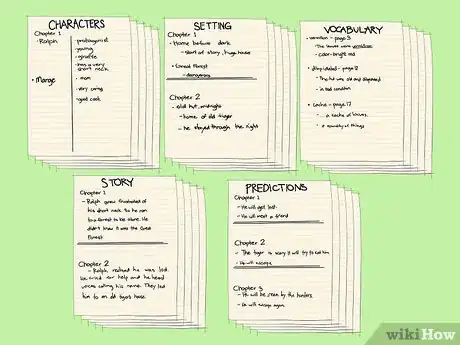 CHARACTERS
Chapter 1
• Ralph
- protagonist
- young
- giraffe
- has a very short neck
• Marge
- mom
- very caring
- good cook
SETTING
Chapter 1
- Home before dark
- start of story, huge house
- Great Forest
- dangerous
Chapter 2
- old hut, midnight
- home of old tiger
- he stayed through the night
VOCABULARY
• vermilion - page 3
The leaves were vermilion
- color - bright red
• dilapidated - page 12
The hut was old and dilapidated
- in bad condition
• cache - page 17
... a cache of knives.
- a quantity of things
STORY
Chapter 1
- Ralph grew frustrated of
his short neck. So he ran
to a forest to be alone. He
didn't know it was the Great
Forest.
Chapter 2
- Ralph realized he was lost.
He cried for help and he heard
voices calling his name. They led
him to an old tiger's house.
PREDICTIONS
Chapter 1
- He will get lost.
- He will meet a friend
Chapter 2
- The tiger is scary. It will try to eat him
- He will escape
Chapter 3
- He will be seen by the hunters
- He will escape again.
wikiHow